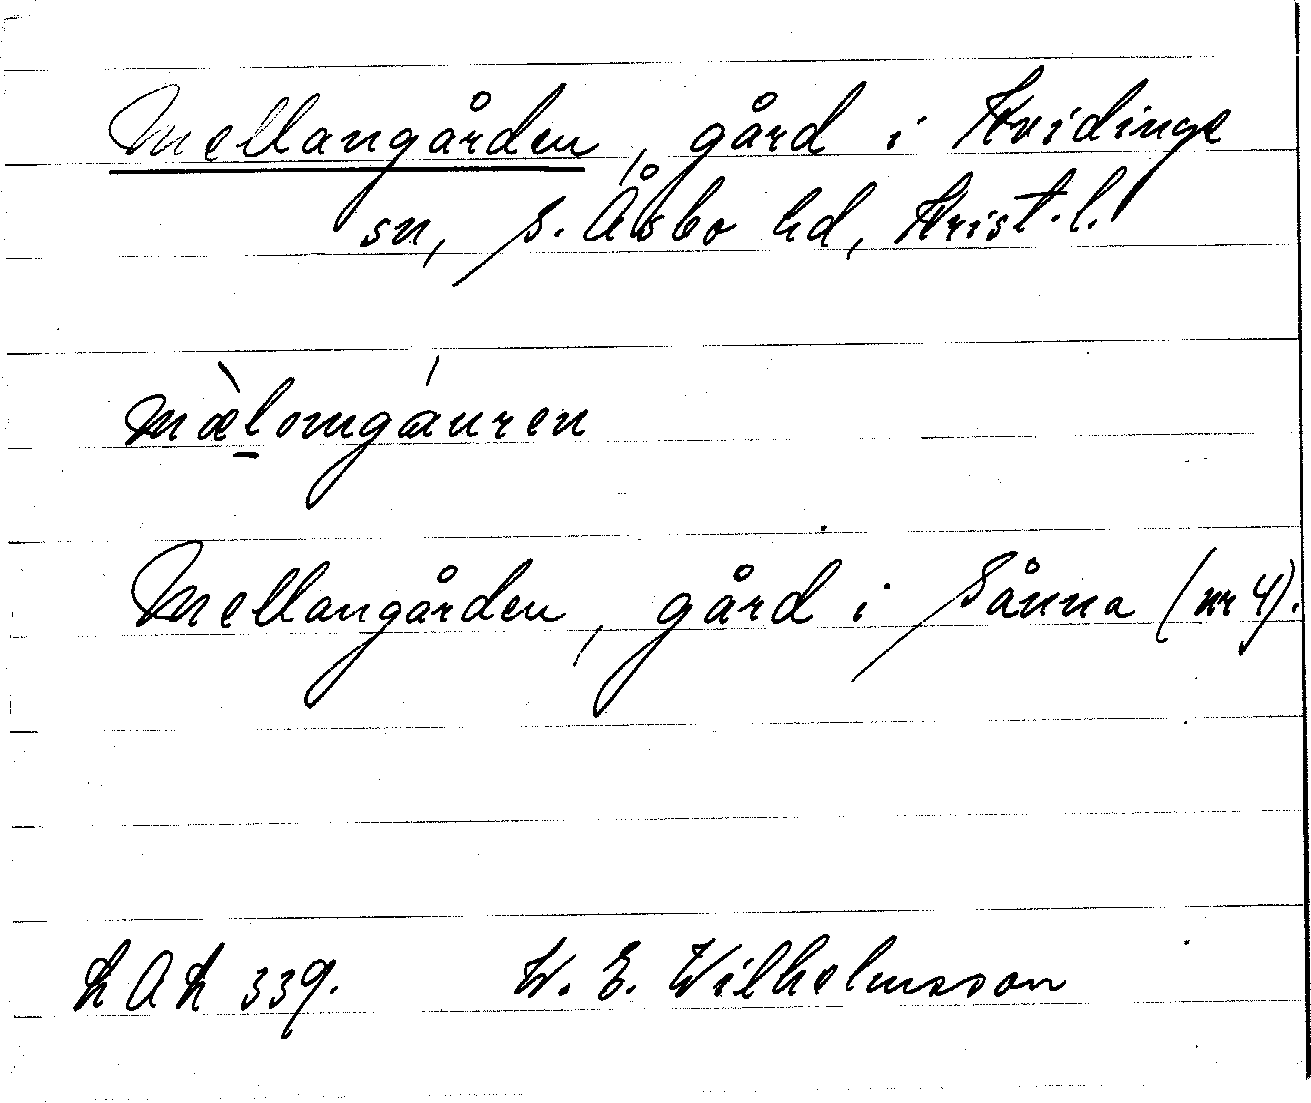 Mellangården, gård i Kvidinge
sn, S. Åsbo hd, Krist.l.
mæ̀lomgáuren
Mellangården, gård i Sånna (nr 4).
LAL 339. W. E. Wilhelmsson